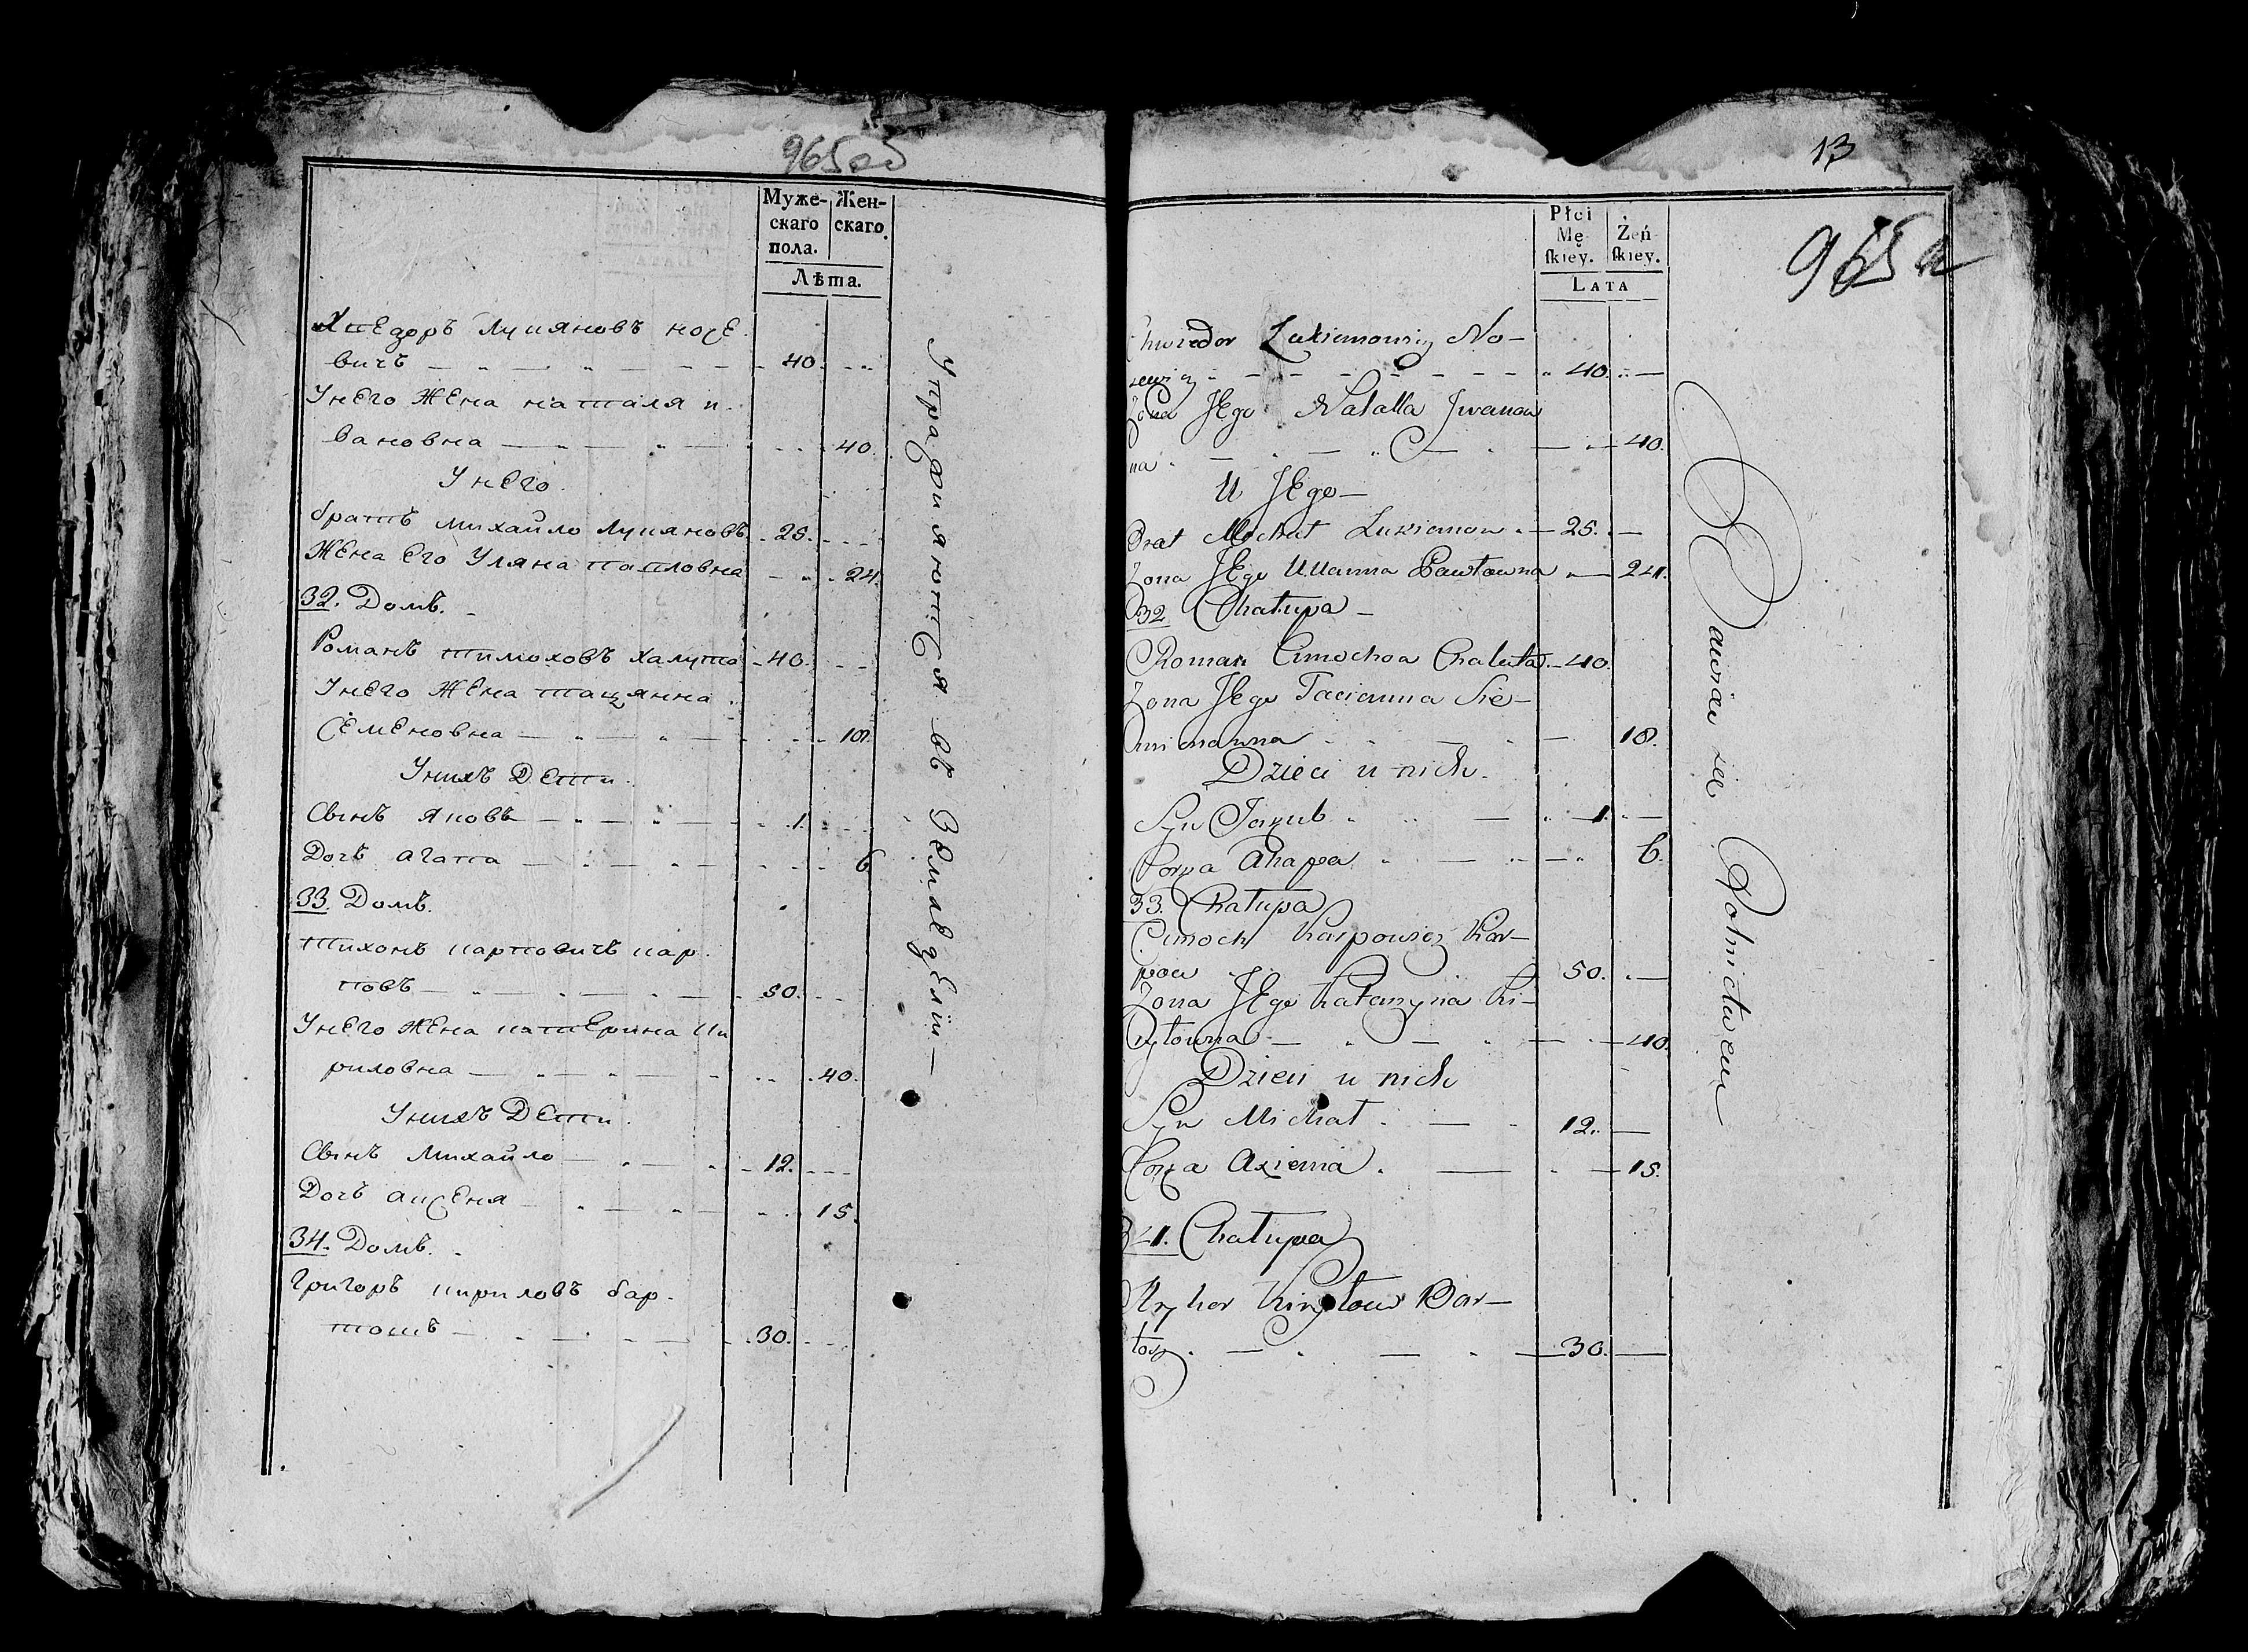 965 об
Муже-
скаго
пола.
Жен-
скаго.
Лѣта.
Хпедоръ Лукяновъ носе
вичъ 40
Унего жена наталя и
вановна 40.
Унего
братъ михайло лукяновъ 25.
жена его Уляна павловна 24.
32. Домъ.
Романъ тимоховъ халута 40.
Унего жена тацянна
семеновна 18.
Унихъ дети
сынъ яковъ 1.
дочъ агапа 6
33. Домъ.
тихонъ карповичъ кар
повъ 50.
Унего жена катерина ки
риловна 40.
Унихъ дети.
сынъ михайло 12.
дочъ аксеня 15.
34. Домъ.
григоръ кириловъ бар
тошъ 30.
Упражняются въ земледелiи
13
965 а
Płci
Mę-
skiey.
Żeń-
skiey.
LATA
Chwiedor Łukianowicz No-
sewicz 40.
Zona Jego Natalla Jwanow
na 40.
U Jego
Brat Michał Łukianow 25.
Zona Jego Ulianna Pawłowna 24.
32 Chałupa
Roman Cimochow Chaluta 40.
Zona Jego Tacianna Sie-
mionowna 18.
Dzieci u nich.
Syn Jakub 1.
Corka Ahapa 6.
33. Chałupa
Cimoch Karpowicz Kar-
pow 50.
Zona Jego Katarzyna Ki-
ryłowna 40.
Dzieci u nich
Syn Michał 12.
Corka Axienia 15.
34. Chałupa
Hryhor Kiryłow Bar-
tosz 30.
Bawiąc się Rolnictwem